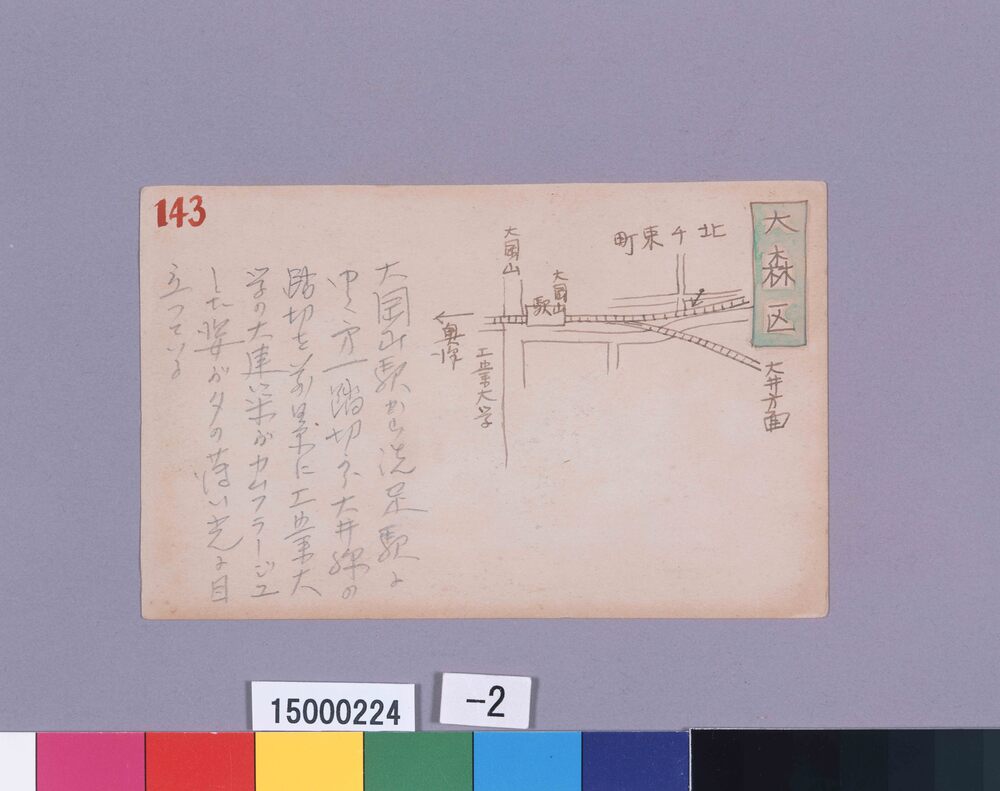 143
大森区
北千束町
大岡山
大岡山
駅
奥沢
工業大学
大井方面
大岡山駅から洗足駅に
ゆく第一踏切から大井線の
踏切を前景に工業大
学の大建築がカムフラージユ
した姿が夕の薄い光に目
立つている
15000224
-2